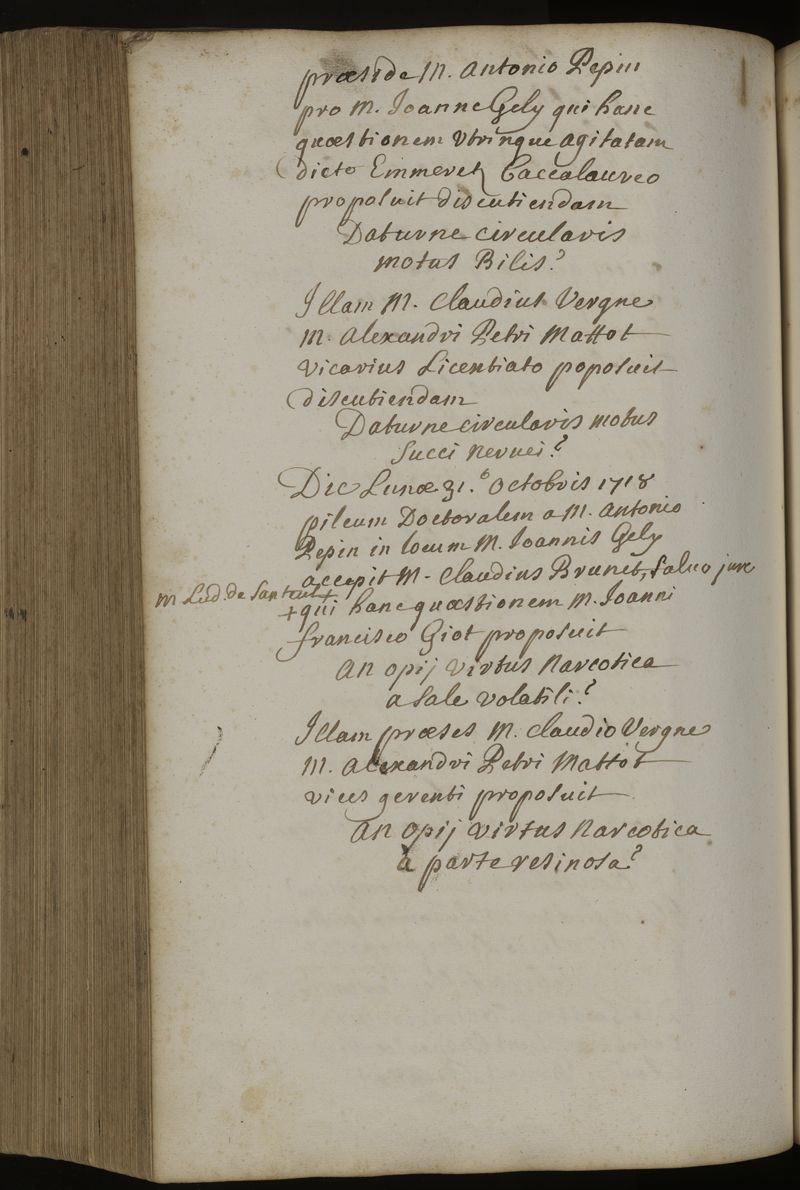 præside M. Antonio Pepin
pro M. Joanne Gely qui hanc
quæstionem utrinque agitatam
dicto Emmerez Baccalaureo
proposuit discutiendam
Daturne circularis
motus Bilis?
Illam M. Claudius Vergne
M. Alexandri Petri Mattot
vicarius Licentiato poposuit
discutiendam
Daturne circularis motus
succi nervei?
Die Lunæ 31.º Octobris 1718
pileum Doctoralem a M. Antonio
Pepin in locum M. Joannis Gely
accepit M. Claudius Brunet, salvo jure
M Lud. de Santeul +
+ qui hanc quæstionem M. Joanni
francisco Giot proposuit
An opij virtus Narcotica
a sale volatili?
Illam præses M. Claudio Vergne
M. Alexandri Petri Mattot
vices gerenti proposuit
An opij virtus Narcotica
à parte resinosa?